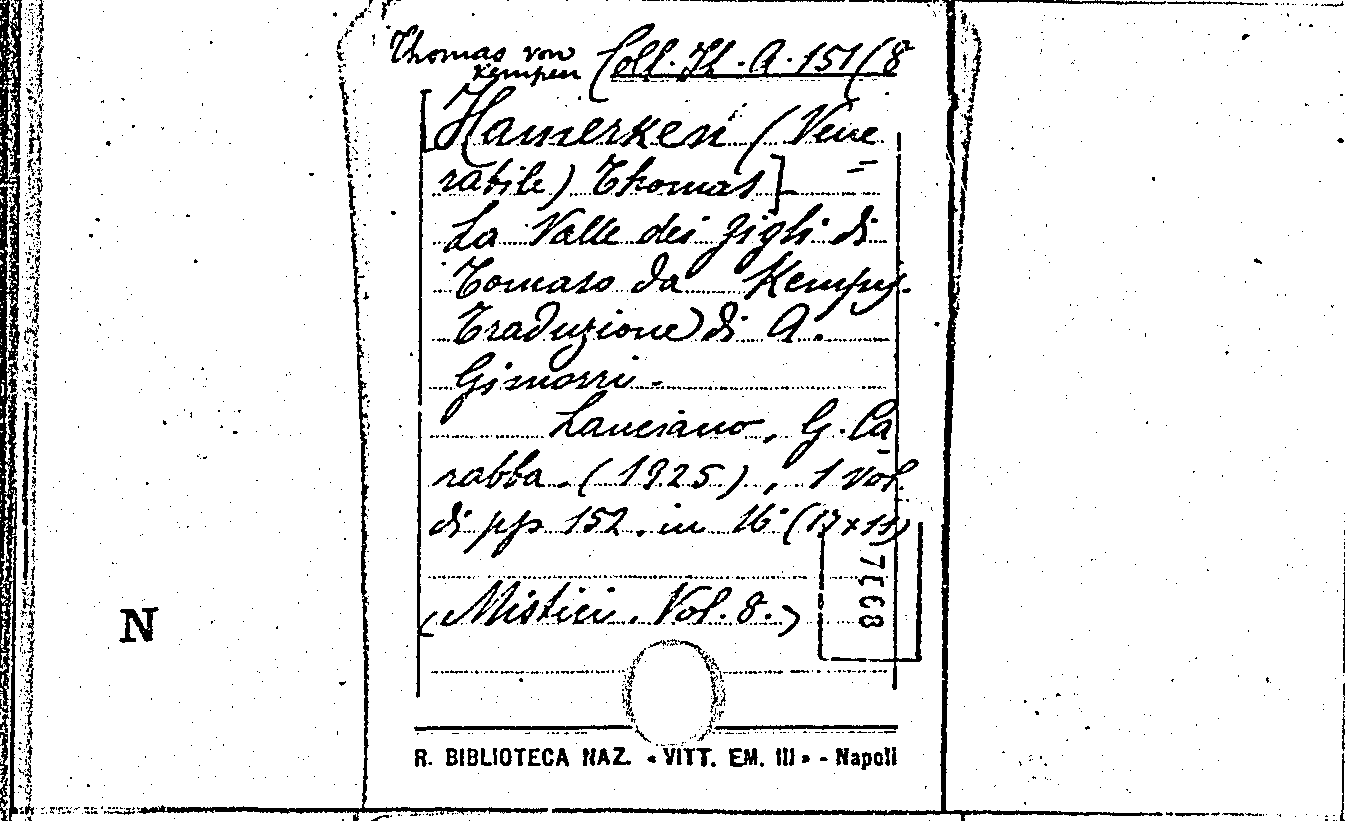 Thomas von
Kempen
Coll. It. A. 151(8
[Hamerken (Vene
rabile) Thomas]
La Valle dei gigli di
Tomaso da Kempis.
Traduzione di A.
Gimorri.
Lanciano, G. Ca
rabba. (1925), 1 vol.
di pp 152. in 16° (17x11)
(Mistici. Vol. 8.)
N
R. BIBLIOTECA NAZ. «VITT. EM. III» - Napoli